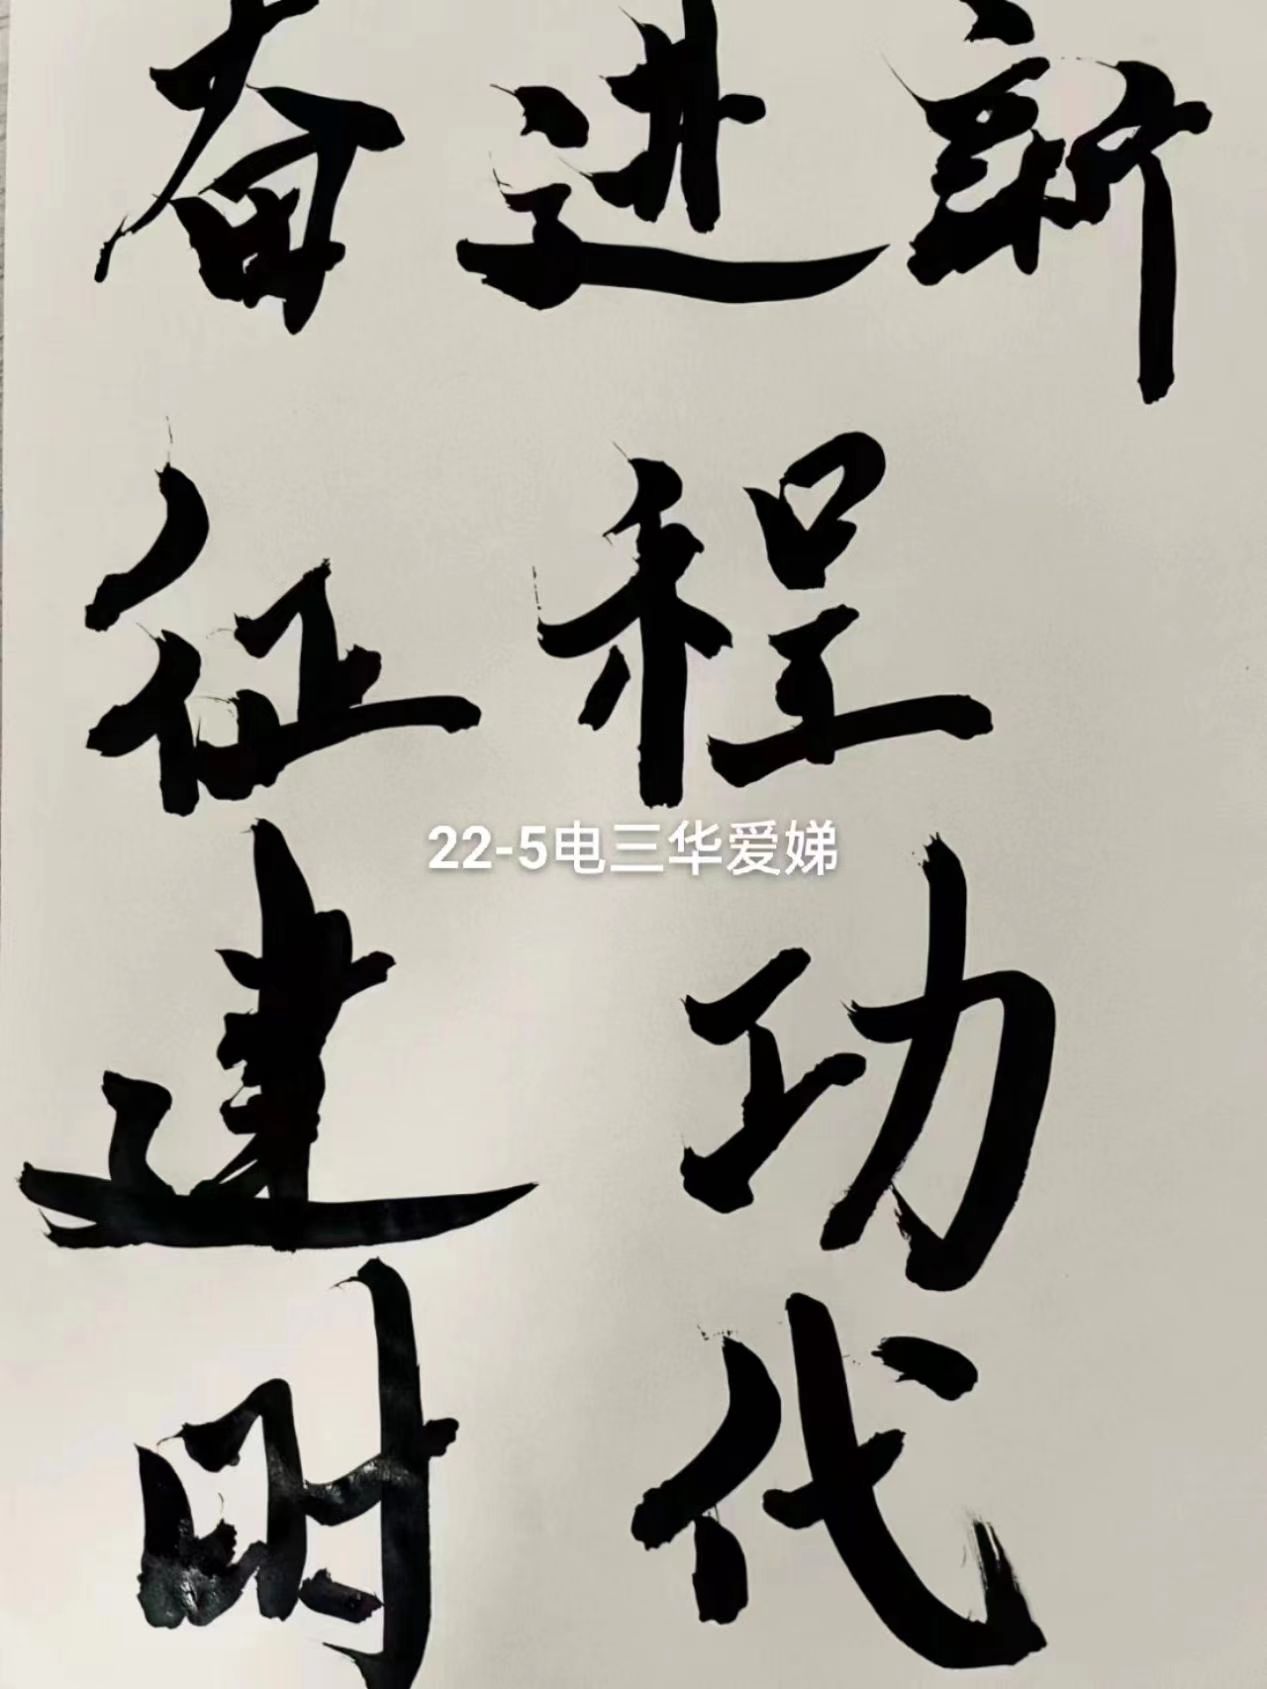 奋进新
征程
22-5电三华爱娣
建功
时代